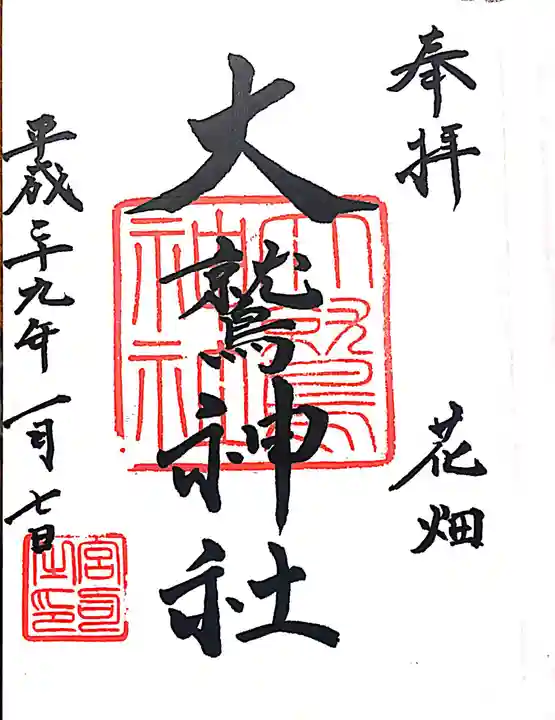 奉拝
花畑
大鷲神社
平成二十九年一月七日
大鷲神社
宮司之印